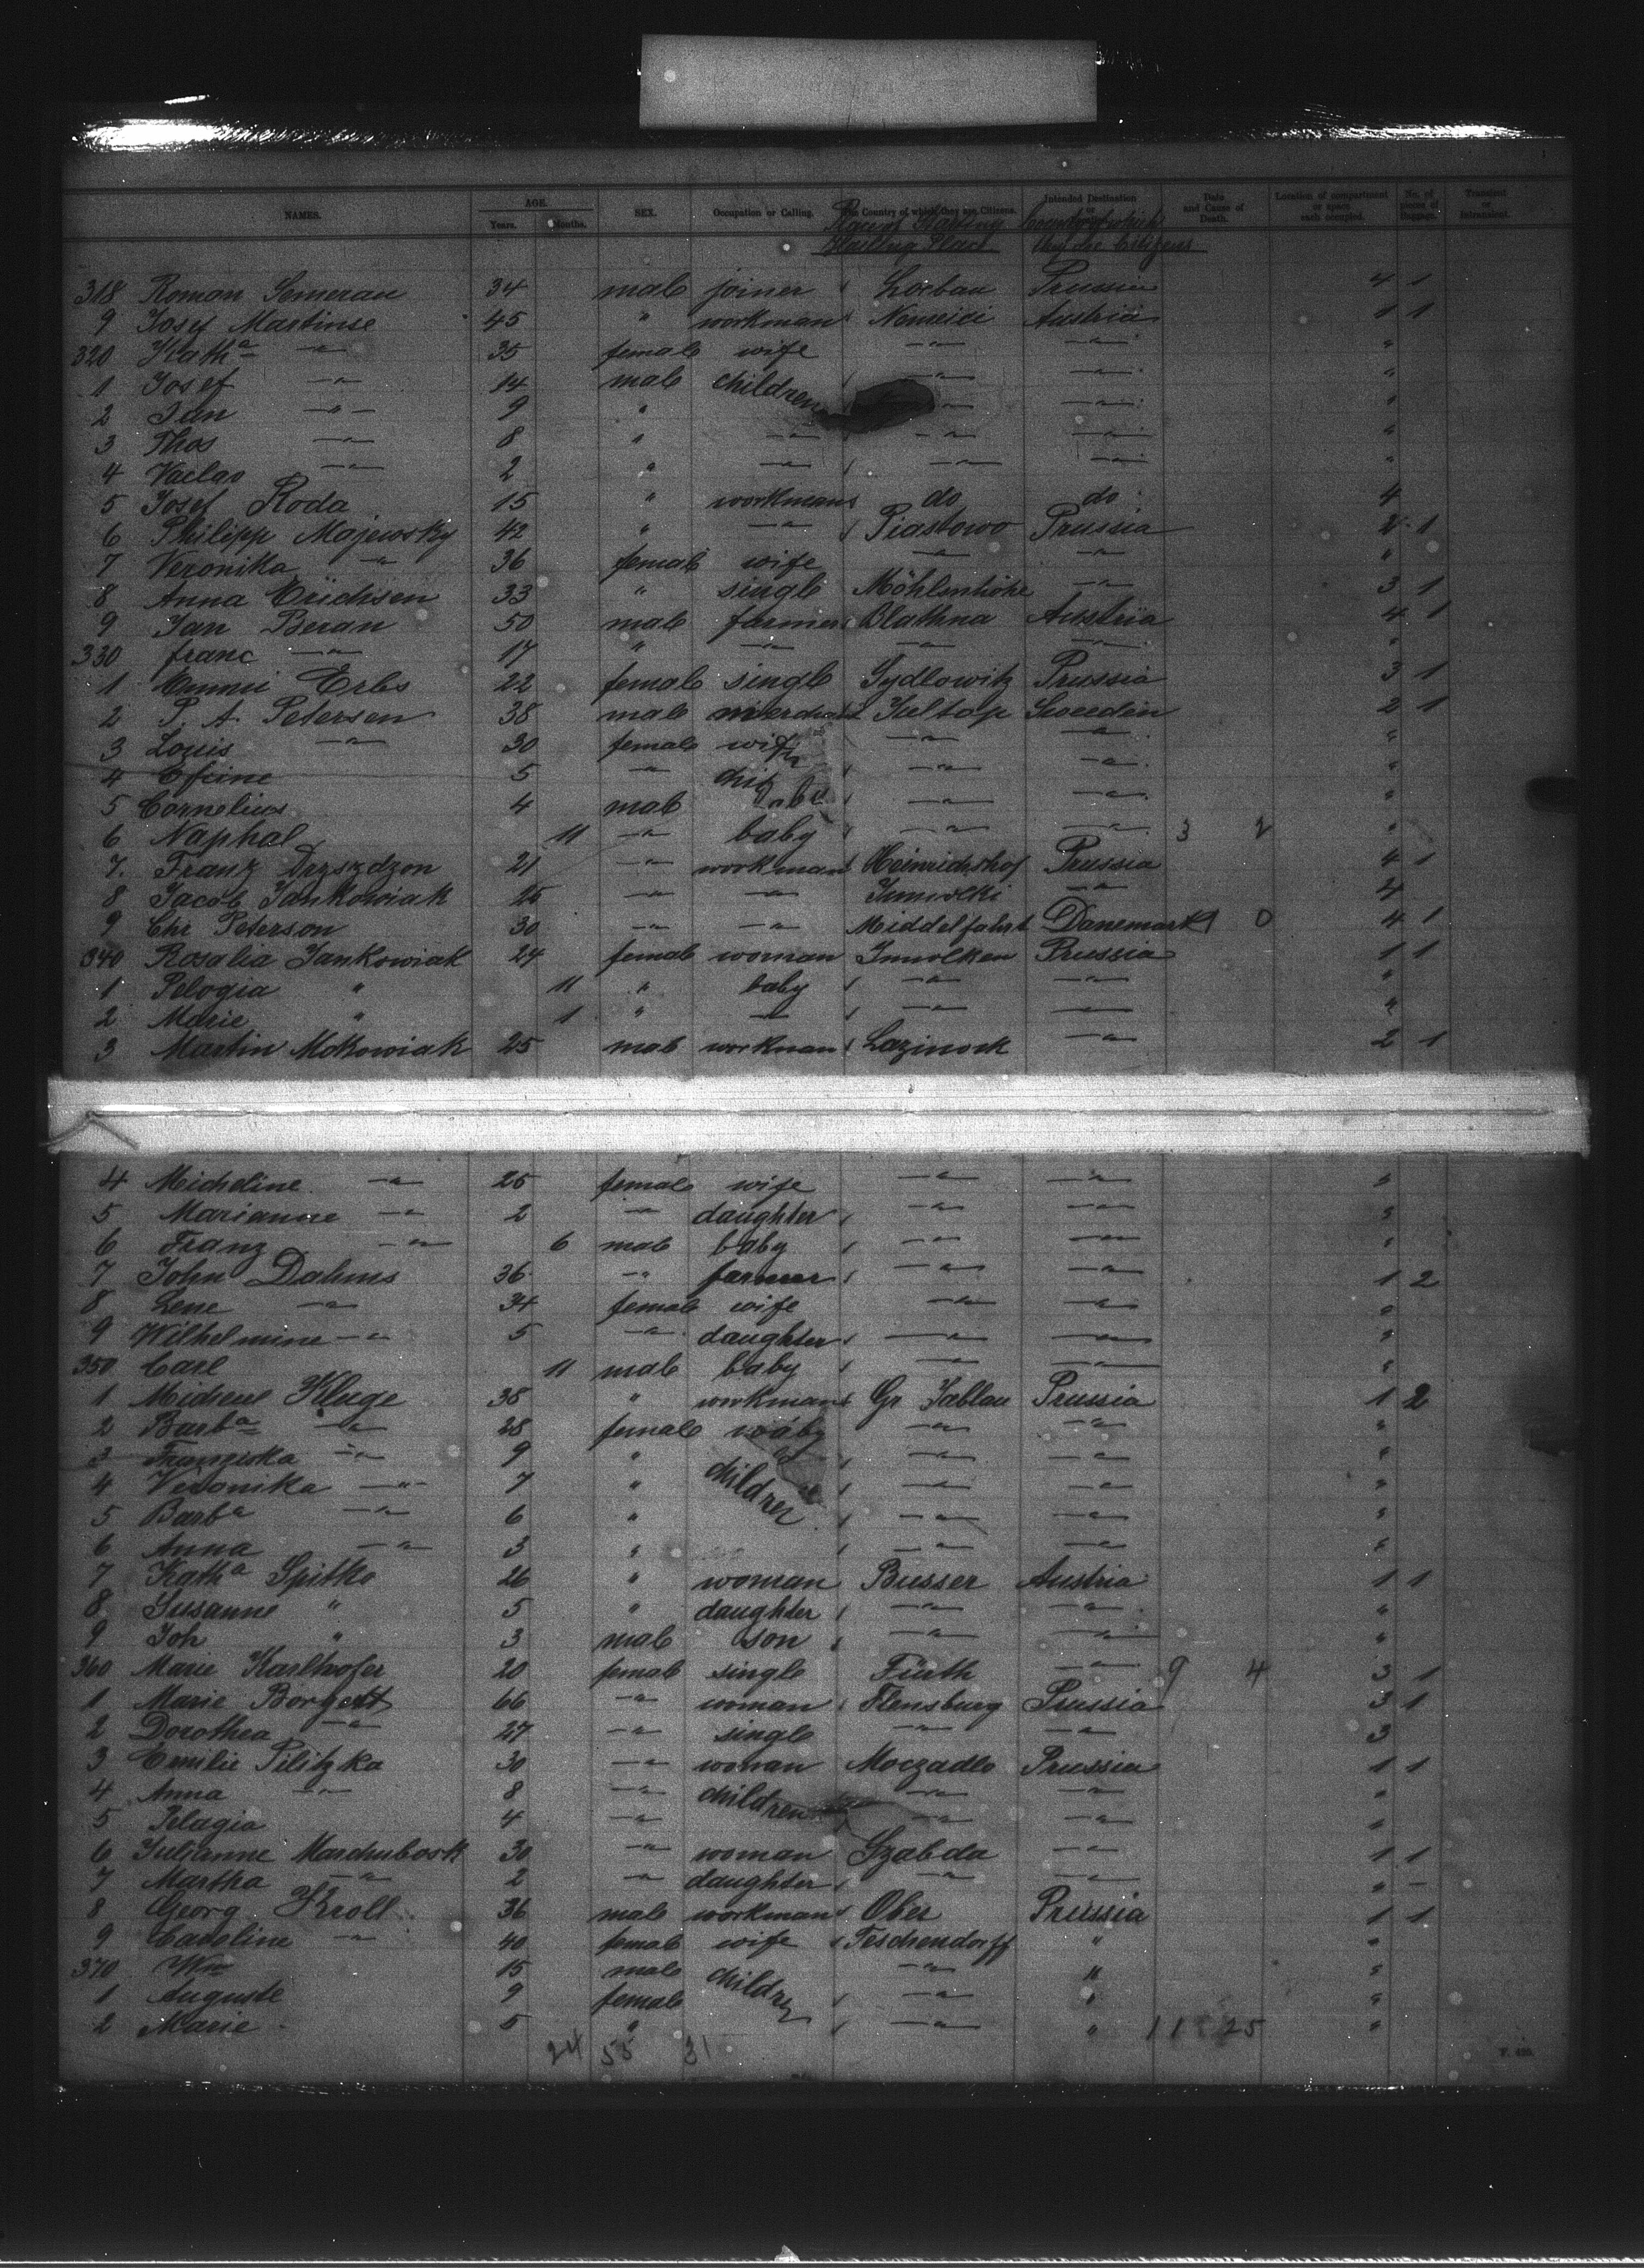 NAMES. AGE. Years. Months. SEX. Occupation or Calling. The Country of which they are Citizens. Intended Destination or Date and Cause of Death. Location of compartment or space each occupied. No. of pieces of Baggage. Transient or
Place Country of which
Hailing Place they are Citizens
318 Roman Semerau 34 male joiner Loebau Prussia 4 1
9 Josef Martinse 45 " workman Austria 1 1
320 Katha —"— 35 female wife —"— —"— "
1 Josef —"— 14 male children —"— —"— "
2 Jan —"— 9 " —"— —"— "
3 Thos —"— 8 " —"— —"— —"— "
4 Vaclav —"— 2 " —"— —"— —"— "
5 Josef Koda 15 " workman do do 4
6 Philipp Majewsky 42 " —"— Piastowo Prussia 2 1
7 Veronika —"— 36 female wife —"— —"— "
8 Anna Erichsen 33 " single Möhlenhöhe —"— 3 1
9 Jan Beran 50 male farmer Blathna Austria 4 1
330 franc —"— 17 " —"— —"— —"— "
1 Emmi Erbs 22 female single Sydlowitz Prussia 3 1
2 P. A. Petersen 38 male merchant Sweeden 2 1
3 Louis —"— 30 female wife —"— —"— "
4 5 —"— —"— —"— "
5 Cornelius 4 male —"— —"— "
6 Naphal 11 —"— baby —"— —"— 3 2 "
7. Franz Drzszdzon 21 —"— workman Heinrichshof Prussia 4 1
8 Jacob Jankowiak 25 —"— —"— —"— 4
9 Chr Peterson 30 —"— —"— Middelfahrt Danemark 1 0 4 1
340 Rosalia Jankowiak 24 female woman Imwolken Prussia 1 1
1 Pelogia " 11 " baby —"— —"— "
2 Marie " 1 " —"— —"— —"— "
3 Martin Mokowiak 25 male workman Lazinork —"— 2 1
4 Micheline —"— 25 female wife —"— —"— "
5 Marianne —"— 2 —"— daughter —"— —"— "
6 Franz —"— 6 male baby —"— —"— "
7 John Dahms 36 —"— farmer —"— —"— 1 2
8 Lene —"— 34 female wife —"— —"— "
9 Wilhelmine —"— 5 —"— daughter —"— —"— "
350 Carl 11 male baby —"— —"— "
1 Kluge 38 " workman Gr Jablau Prussia 1 2
2 Barba —"— 28 female —"— —"— "
3 Franziska —"— 9 " —"— —"— "
4 Veronika —"— 7 " children —"— —"— "
5 Barba —"— 6 " —"— —"— "
6 Anna —"— 3 " —"— —"— "
7 Katha Spitko 26 " woman Busser Austria 1 1
8 Susanne " 5 " daughter —"— —"— "
9 Joh " 3 male son —"— —"— "
360 Marie Karlhofer 20 female single Fürth —"— 9 4 3 1
1 Marie Borgert 66 —"— woman Flensburg Prussia 3 1
2 Dorothea —"— 27 —"— single —"— —"— 3
3 Emilie Pilitzka 30 —"— woman Moczadlo Prussia 1 1
4 Anna —"— 8 —"— children —"— —"— "
5 Pelagia 4 —"— —"— —"— "
6 Julianne Marchubosk 30 —"— woman Szabda —"— 1 1
7 Martha —"— 2 —"— daughter —"— —"— " —
8 Georg Kroll 36 male workman Ober Prussia 1 1
9 Caroline —"— 40 female wife Teschendorff " "
370 Wm 15 male children —"— " "
1 Auguste 9 female —"— " "
2 Marie 5 " —"— " 11 25 "
24 55 31